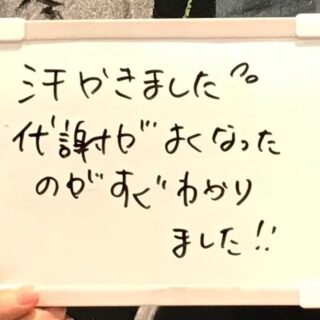 汗かきました
代謝がよくなった
のがすぐわかり
ました!!